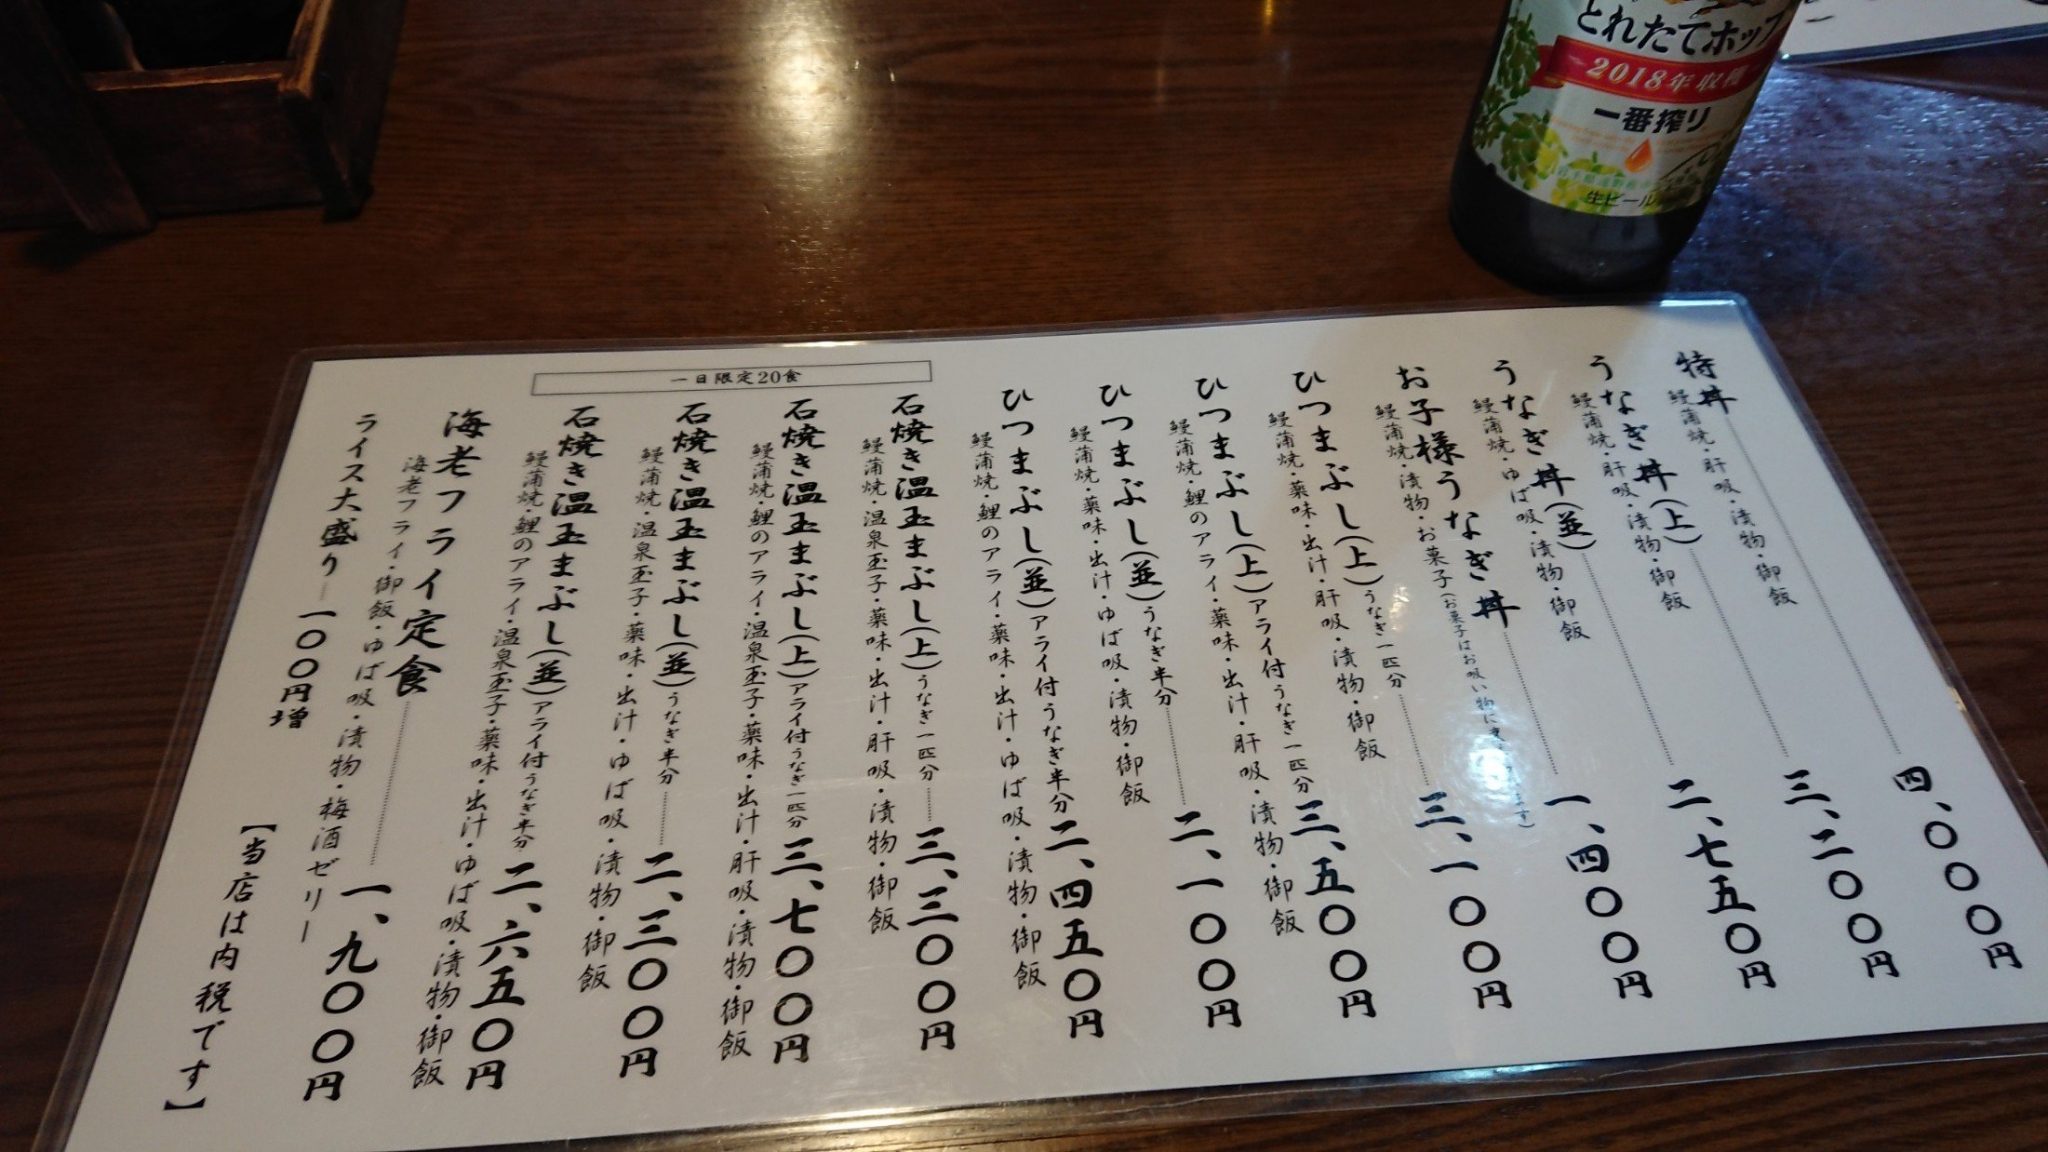 とれたてホップ
2018年収穫
一番搾り
生ビール
特丼
鰻蒲焼・肝吸・漬物・御飯
四、〇〇〇円
うなぎ丼(上)
鰻蒲焼・肝吸・漬物・御飯
三、二〇〇円
うなぎ丼(並)
鰻蒲焼・ゆば吸・漬物・御飯
二、七五〇円
お子様うなぎ丼
鰻蒲焼・漬物・お菓子(お菓子はお吸い物に
一、四〇〇円
ひつまぶし(上)うなぎ一匹分
鰻蒲焼・薬味・出汁・肝吸・漬物・御飯
三、一〇〇円
ひつまぶし(上)アライ付うなぎ一匹分
鰻蒲焼・鯉のアライ・薬味・出汁・肝吸・漬物・御飯
三、五〇〇円
ひつまぶし(並)うなぎ半分
鰻蒲焼・薬味・出汁・ゆば吸・漬物・御飯
二、一〇〇円
ひつまぶし(並)アライ付うなぎ半分
鰻蒲焼・鯉のアライ・薬味・出汁・ゆば吸・漬物・御飯
二、四五〇円
一日限定20食
石焼き温玉まぶし(上)うなぎ一匹分
鰻蒲焼・温泉玉子・薬味・出汁・肝吸・漬物・御飯
三、三〇〇円
石焼き温玉まぶし(上)アライ付うなぎ一匹分
鰻蒲焼・鯉のアライ・温泉玉子・薬味・出汁・肝吸・漬物・御飯
三、七〇〇円
石焼き温玉まぶし(並)うなぎ半分
鰻蒲焼・温泉玉子・薬味・出汁・ゆば吸・漬物・御飯
二、三〇〇円
石焼き温玉まぶし(並)アライ付うなぎ半分
鰻蒲焼・鯉のアライ・温泉玉子・薬味・出汁・ゆば吸・漬物・御飯
二、六五〇円
海老フライ定食
海老フライ・御飯・ゆば吸・漬物・梅酒ゼリー
一、九〇〇円
ライス大盛り 一〇〇円増
【当店は内税です】